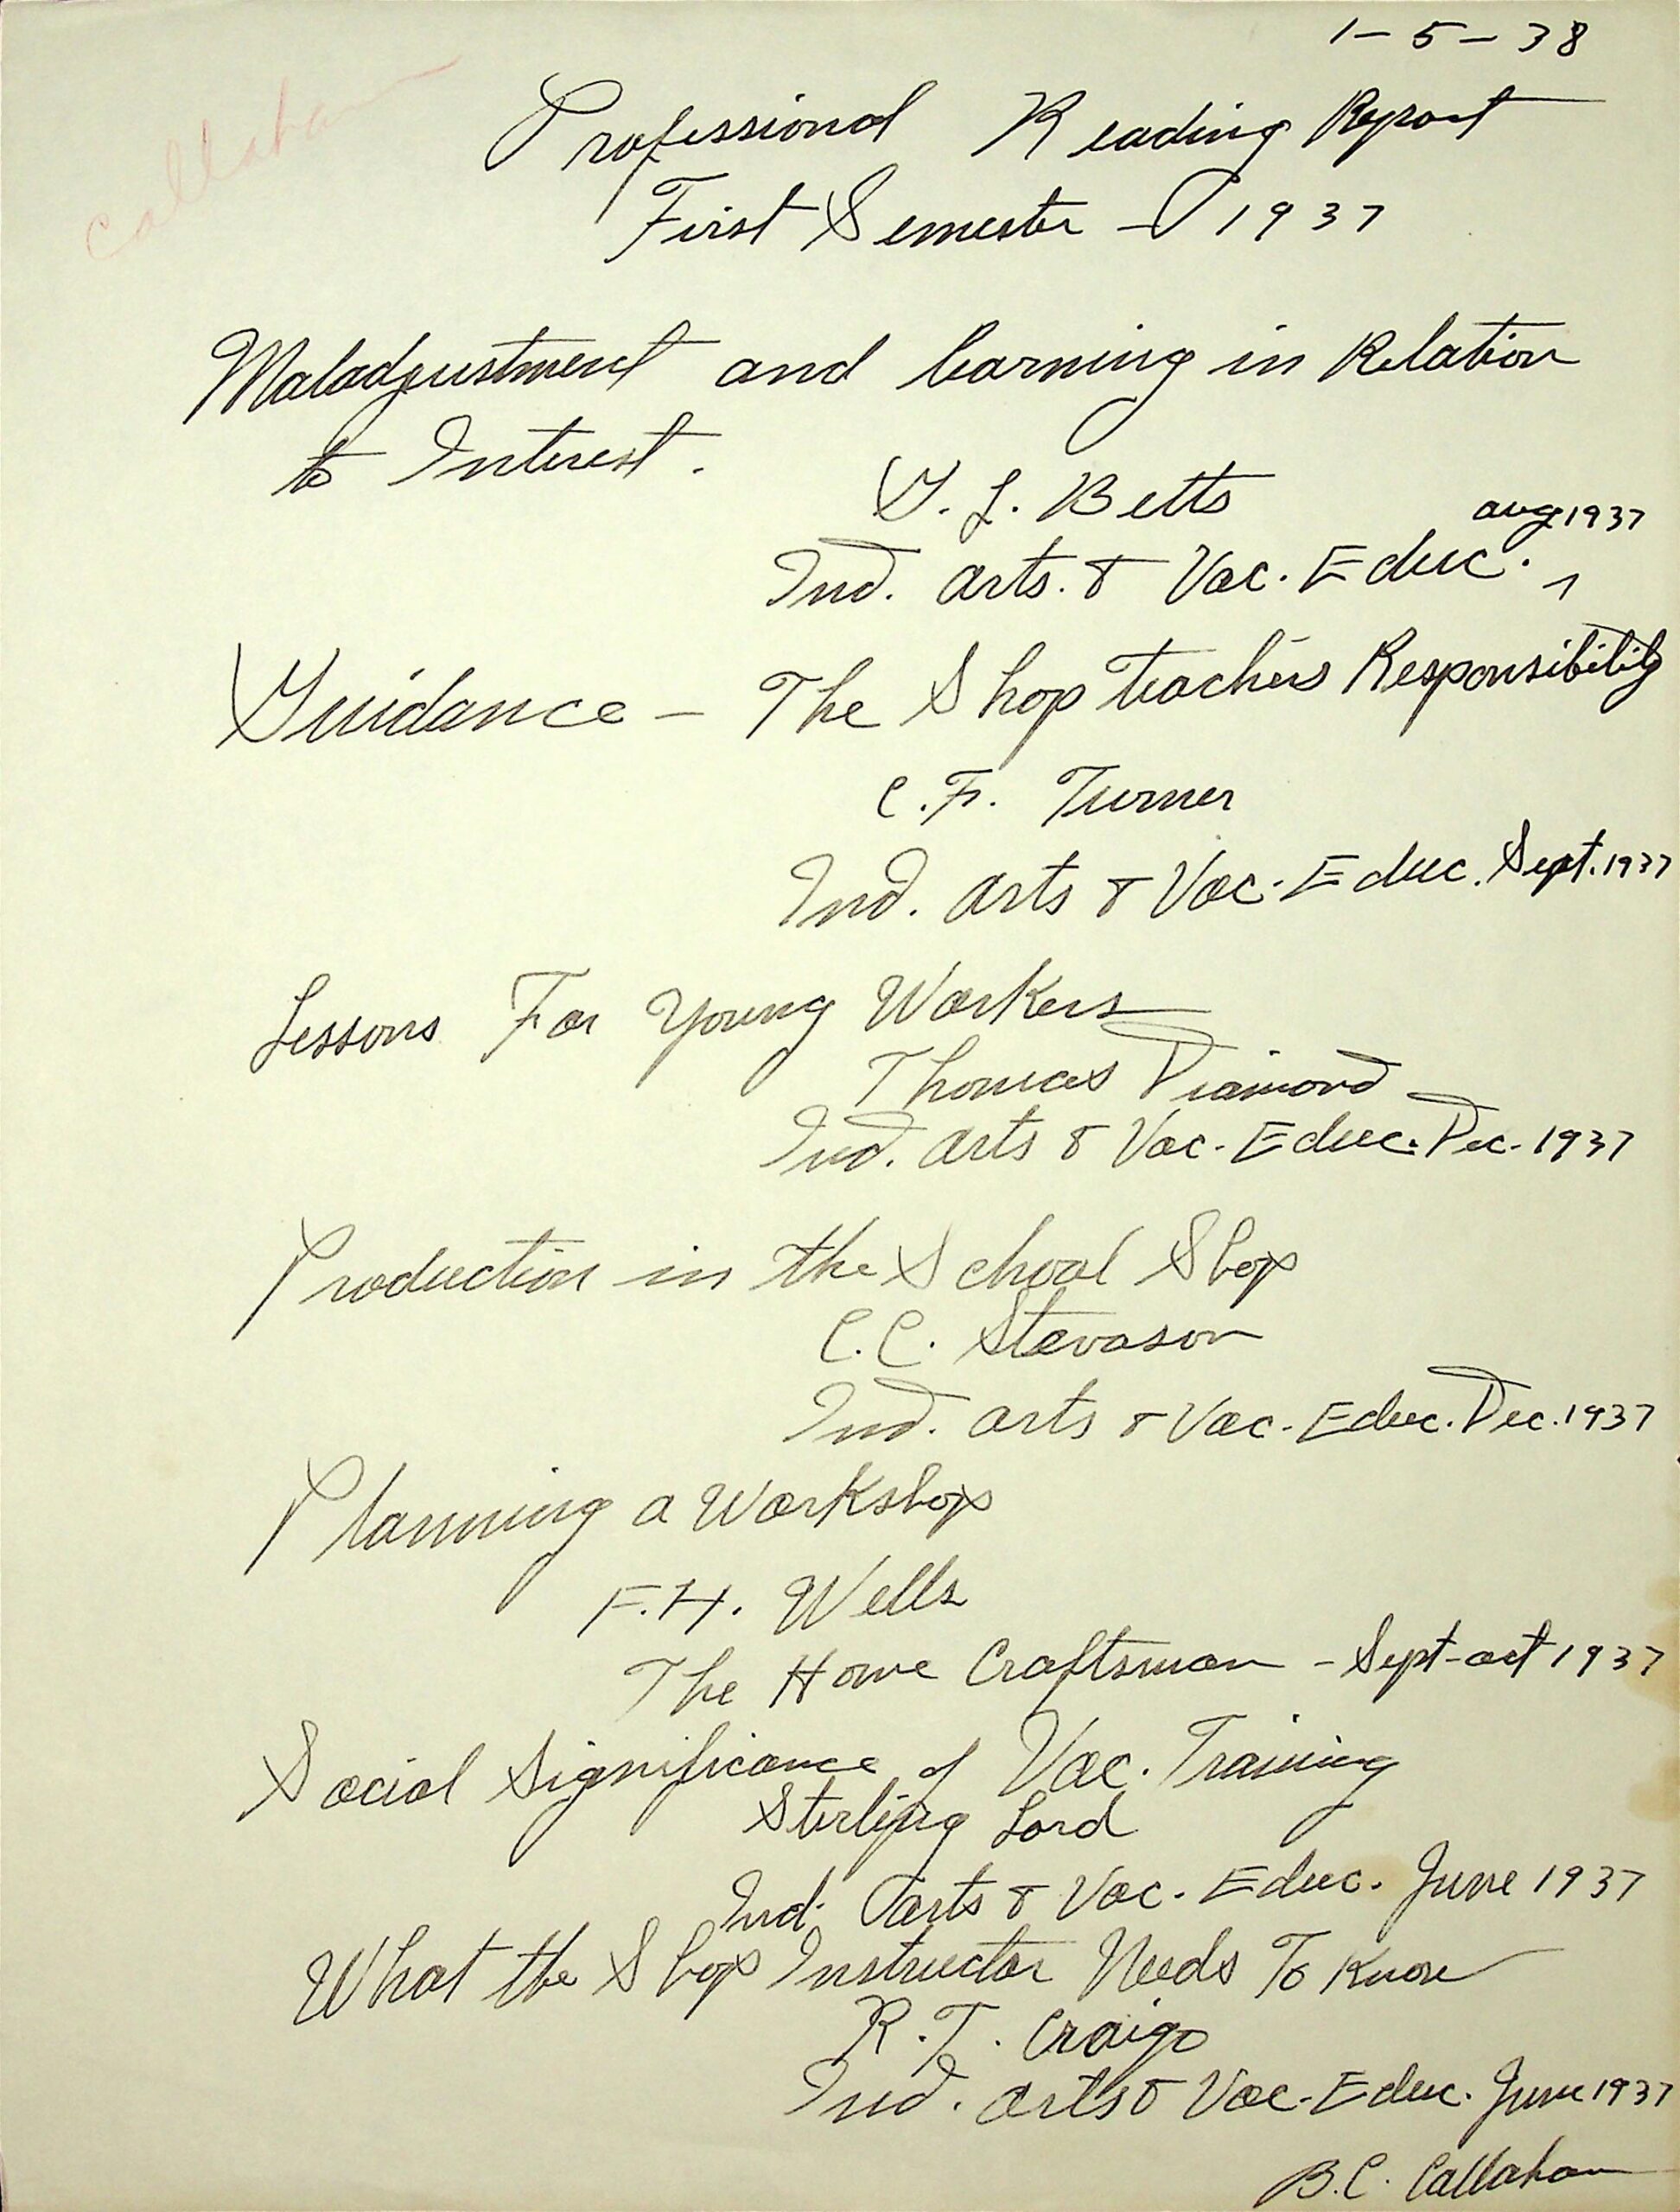 1-5-38
Callahan
Professional Reading Report
First Semester - 1937
Maladjustment and learning in Relation
to Interest.
G. L. Betts
Aug 1937
Ind. Arts. & Voc. Educ.
Guidance - The Shop Teachers Responsibility
C. F. Turner
Ind. Arts & Voc. Educ. Sept. 1937
Lessons For Young Workers
Thomas Diamond
Ind. Arts & Voc. Educ. Dec. 1937
Production in the School Shop
C.C. Stevason
Ind. Arts & Voc. Educ. Dec. 1937
Planning a Workshop
F.H. Wells
The Home Craftsman - Sept-Oct 1937
Social Significance of Voc. Training
Sterling Lord
Ind. Arts & Voc. Educ. June 1937
What the Shop Instructor Needs To Know
R.T. Craigo
Ind. Arts & Voc. Educ. June 1937
B.C. Callahan